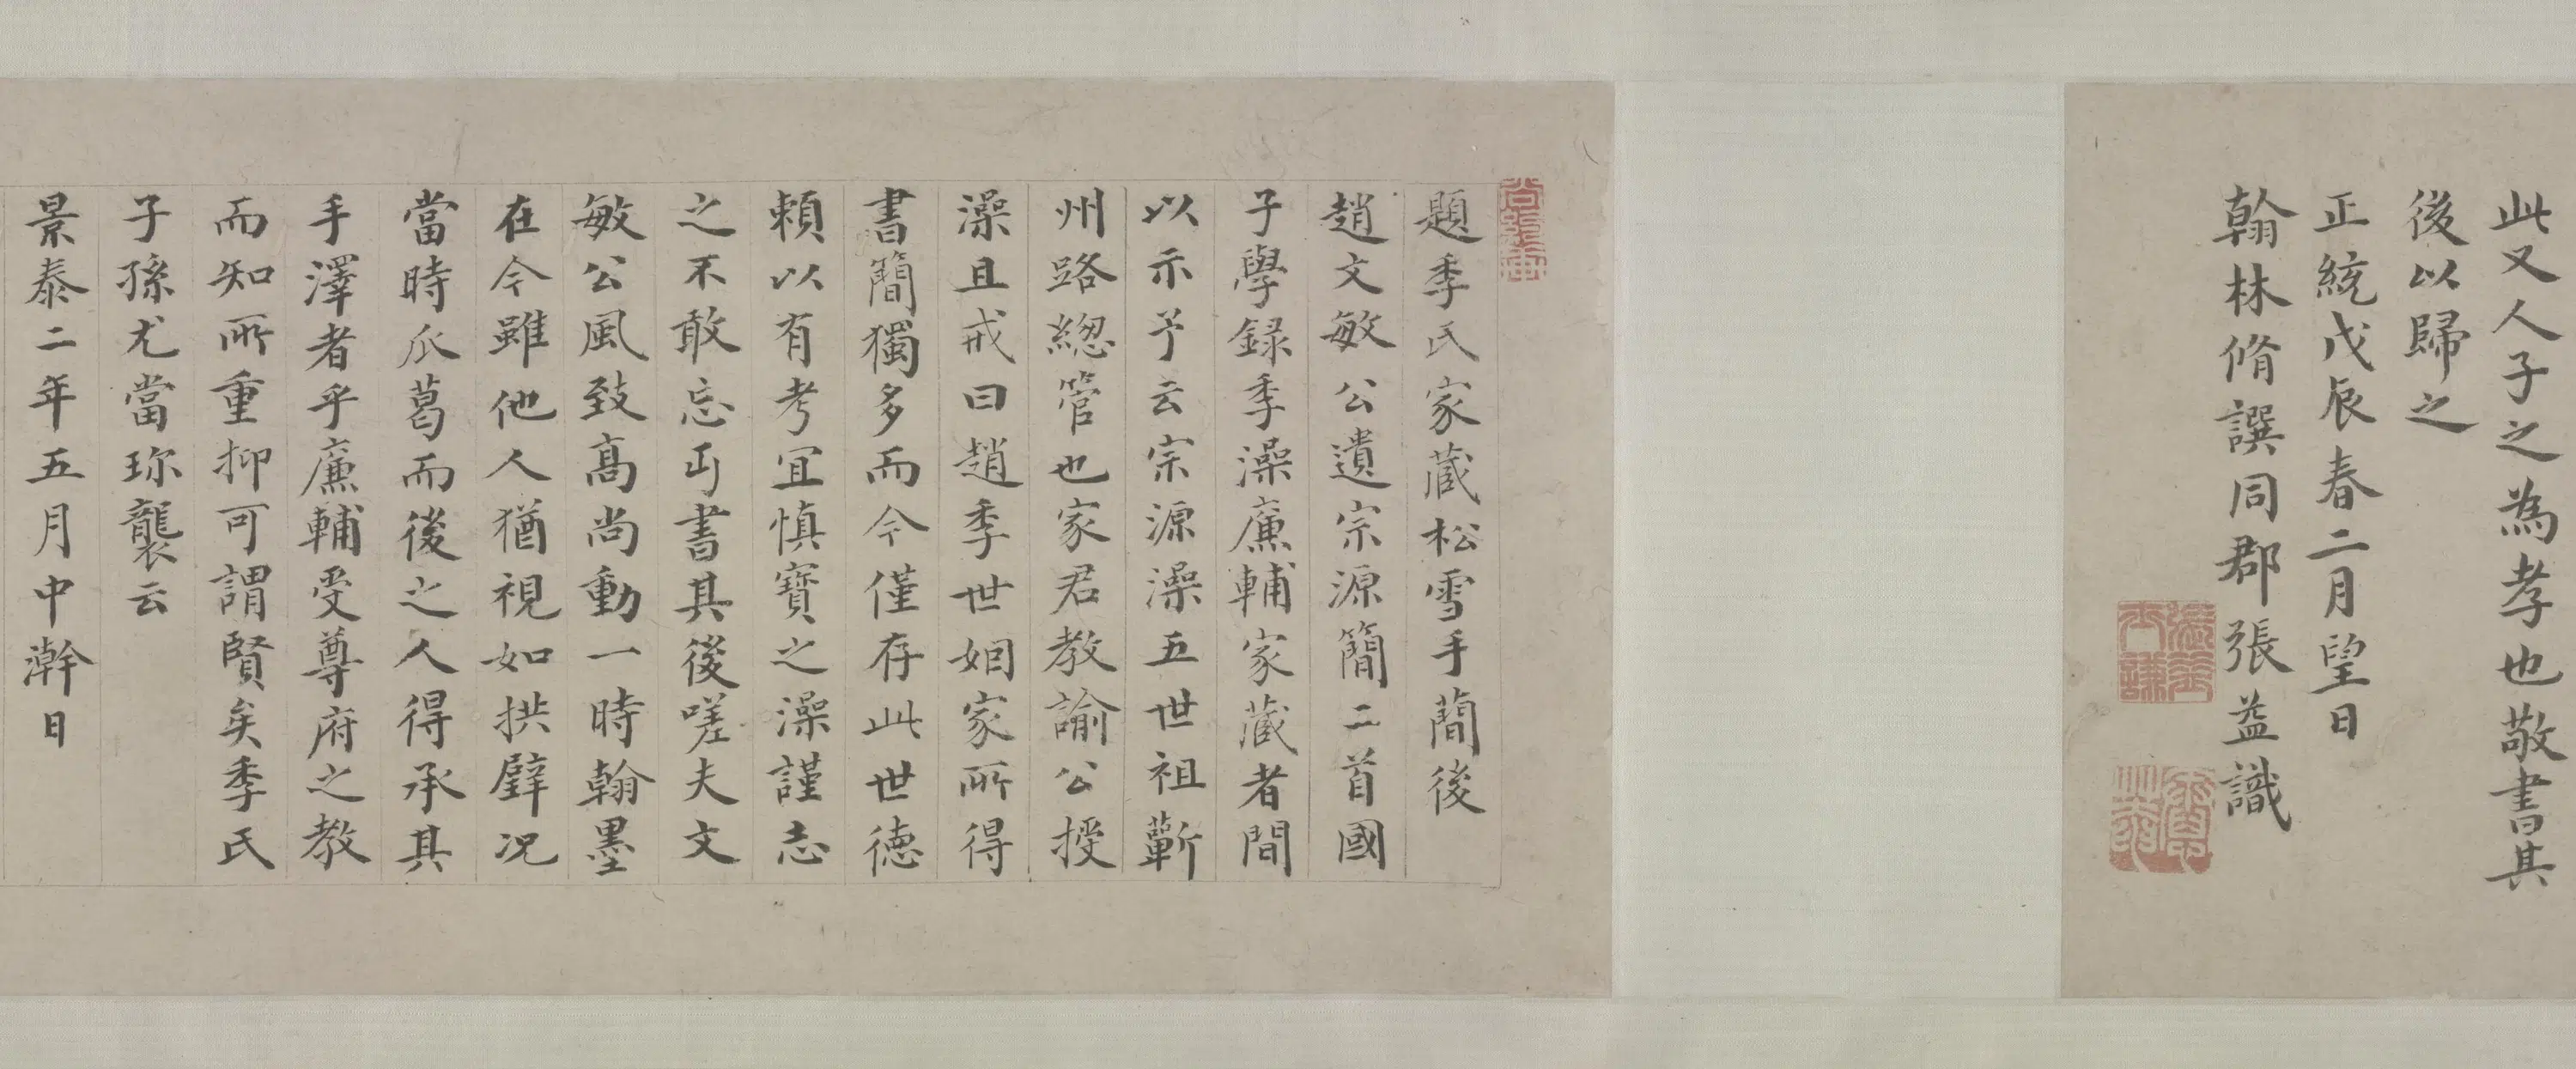 此又人子之為孝也敬書其
後以歸之
正統戊辰春二月望日
翰林脩譔同郡張益識
題季氏家藏松雪手蕳後
趙文敏公遺宗源簡二首國
子學録季澡廉輔家藏者間
以示予云宗源澡五世祖蘄
州路緫管也家君教諭公授
澡且戒曰趙季世姻家所得
書簡獨多而今僅存此世徳
頼以有考冝慎寳之澡謹志
之不敢忘丐書其後嗟夫文
敏公風致髙尚動一時翰墨
在今雖他人猶視如拱璧况
當時瓜葛而後之人得承其
手澤者乎廉輔受尊府之教
而知所重抑可謂賢矣季氏
子孫尤當珎襲云
景泰二年五月中澣日